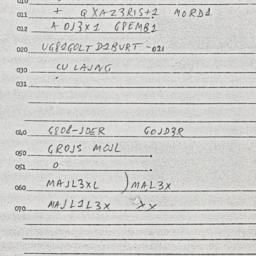 010
011 + QXAZ3RIS+1 MORD1
012 A OJ3X1 GPEMB1
020 UGP1GOLT D1BURT -021
030 CU LAJNG
031
040 GPOB-JDER GOJD3R
050 GROJS MOJL
051 O
060 MAJL3XL ) MAL3X
070 MAJL1L3X